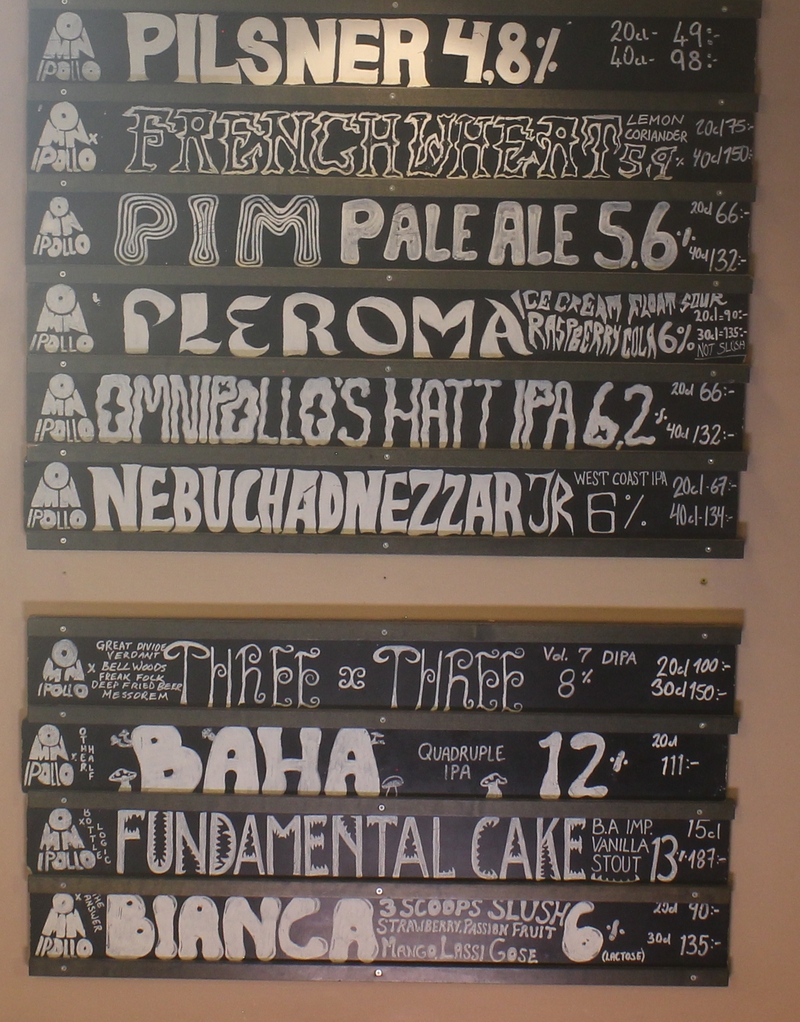 OMNIPOLLO PILSNER 4,8% 20cl- 49:-
40cl- 98:-
OMNIPOLLO x FRENCH WHEAT LEMON CORIANDER 5,9% 20cl/75:-
40cl/150:-
OMNIPOLLO PIM PALE ALE 5.6% 20cl 66:-
40cl/132:-
OMNIPOLLO PLEROMA ICE CREAM FLOAT SOUR
RASPBERRY COLA 6% 20cl=90:-
30cl=135:-
NOT SLUSH
OMNIPOLLO OMNIPOLLO'S HATT IPA 6,2% 20cl 66:-
40cl/132:-
OMNIPOLLO NEBUCHADNEZZAR JR WEST COAST IPA
6% 20cl-67:-
40cl-134:-
OMNIPOLLO x GREAT DIVIDE
VERDANT
BELL WOODS
FREAK FOLK
DEEP FRIED BEER
MESSOREM
THREE x THREE Vol. 7 DIPA
8% 20cl 100:-
30cl 150:-
OMNIPOLLO x OTHER HALF BAHA QUADRUPLE
IPA 12% 20cl
111:-
OMNIPOLLO x BOTTLE LOGIC FUNDAMENTAL CAKE B.A IMP.
VANILLA
STOUT 13% 15cl
187:-
OMNIPOLLO x THE ANSWER BIANCA 3 SCOOPS SLUSH
STRAWBERRY, PASSION FRUIT
MANGO LASSI GOSE 6% (LACTOSE) 20cl 90:-
30cl 135:-